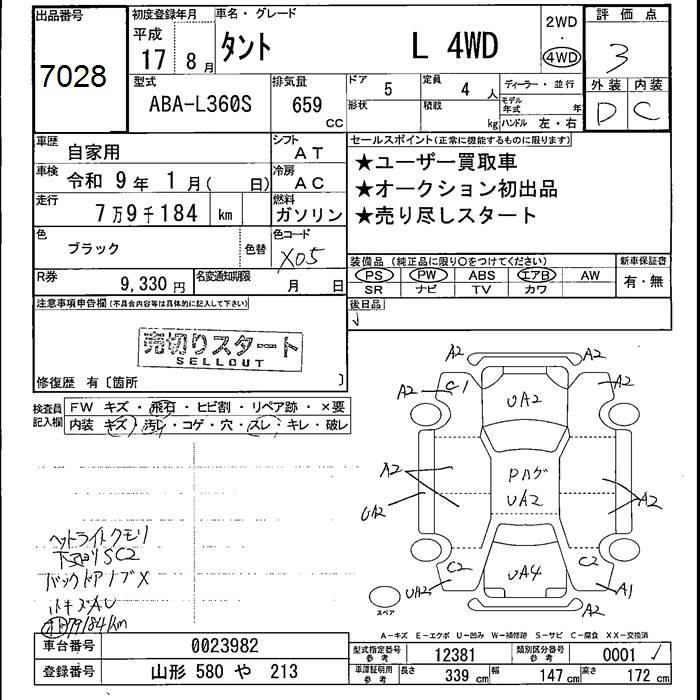 出品番号 初度登録年月 車名・グレード 2WD 評価点
7028 平成 17 8月 タント L 4WD ・ 4WD 3
型式 排気量 ドア 5 定員 4人 ディーラー・並行 外装 内装
ABA-L360S 659 CC 形状 積載 kg モデル年式 年 D C
ハンドル 左・右
車歴 自家用 シフト AT セールスポイント(正常に機能するものに限ります)
車検 令和 9年 1月( 日) 冷房 AC ★ユーザー買取車
走行 7万9千184 km 燃料 ガソリン ★オークション初出品
★売り尽しスタート
色 ブラック 色替 色コード X05
装備品 (純正品に限り○をつけてください) 新車保証書
R券 9,330円 名変通知期限 月 日 PS PW ABS エアB AW 有・無
SR ナビ TV カワ
注意事項申告欄(不具合内容等は具体的に記入して下さい) 後日品
売切りスタート
SELLOUT
修復歴 有〔箇所 〕
検査員記入欄 FW キズ・飛石・ヒビ割・リペア跡・×要
内装 キズ・汚レ・コゲ・穴・スレ・キレ・破レ
A2 A2
A2 C1 UA2 A2
A2 Pハゲ UA2 A2
UA2
ヘットライトクモリ
下廻りSC2
バックドアノブX
小キズAU
79184km
UA2 C2 UA4 C2 A1
スペア A2
A-キズ E-エクボ U-凹み W-補修跡 S-サビ C-腐食 XX-交換済
車台番号 0023982 型式指定番号 参考 12381 類別区分番号 参考 0001
登録番号 山形 580 や 213 車庫証明用 参考 長さ 339 cm 幅 147 cm 高さ 172 cm